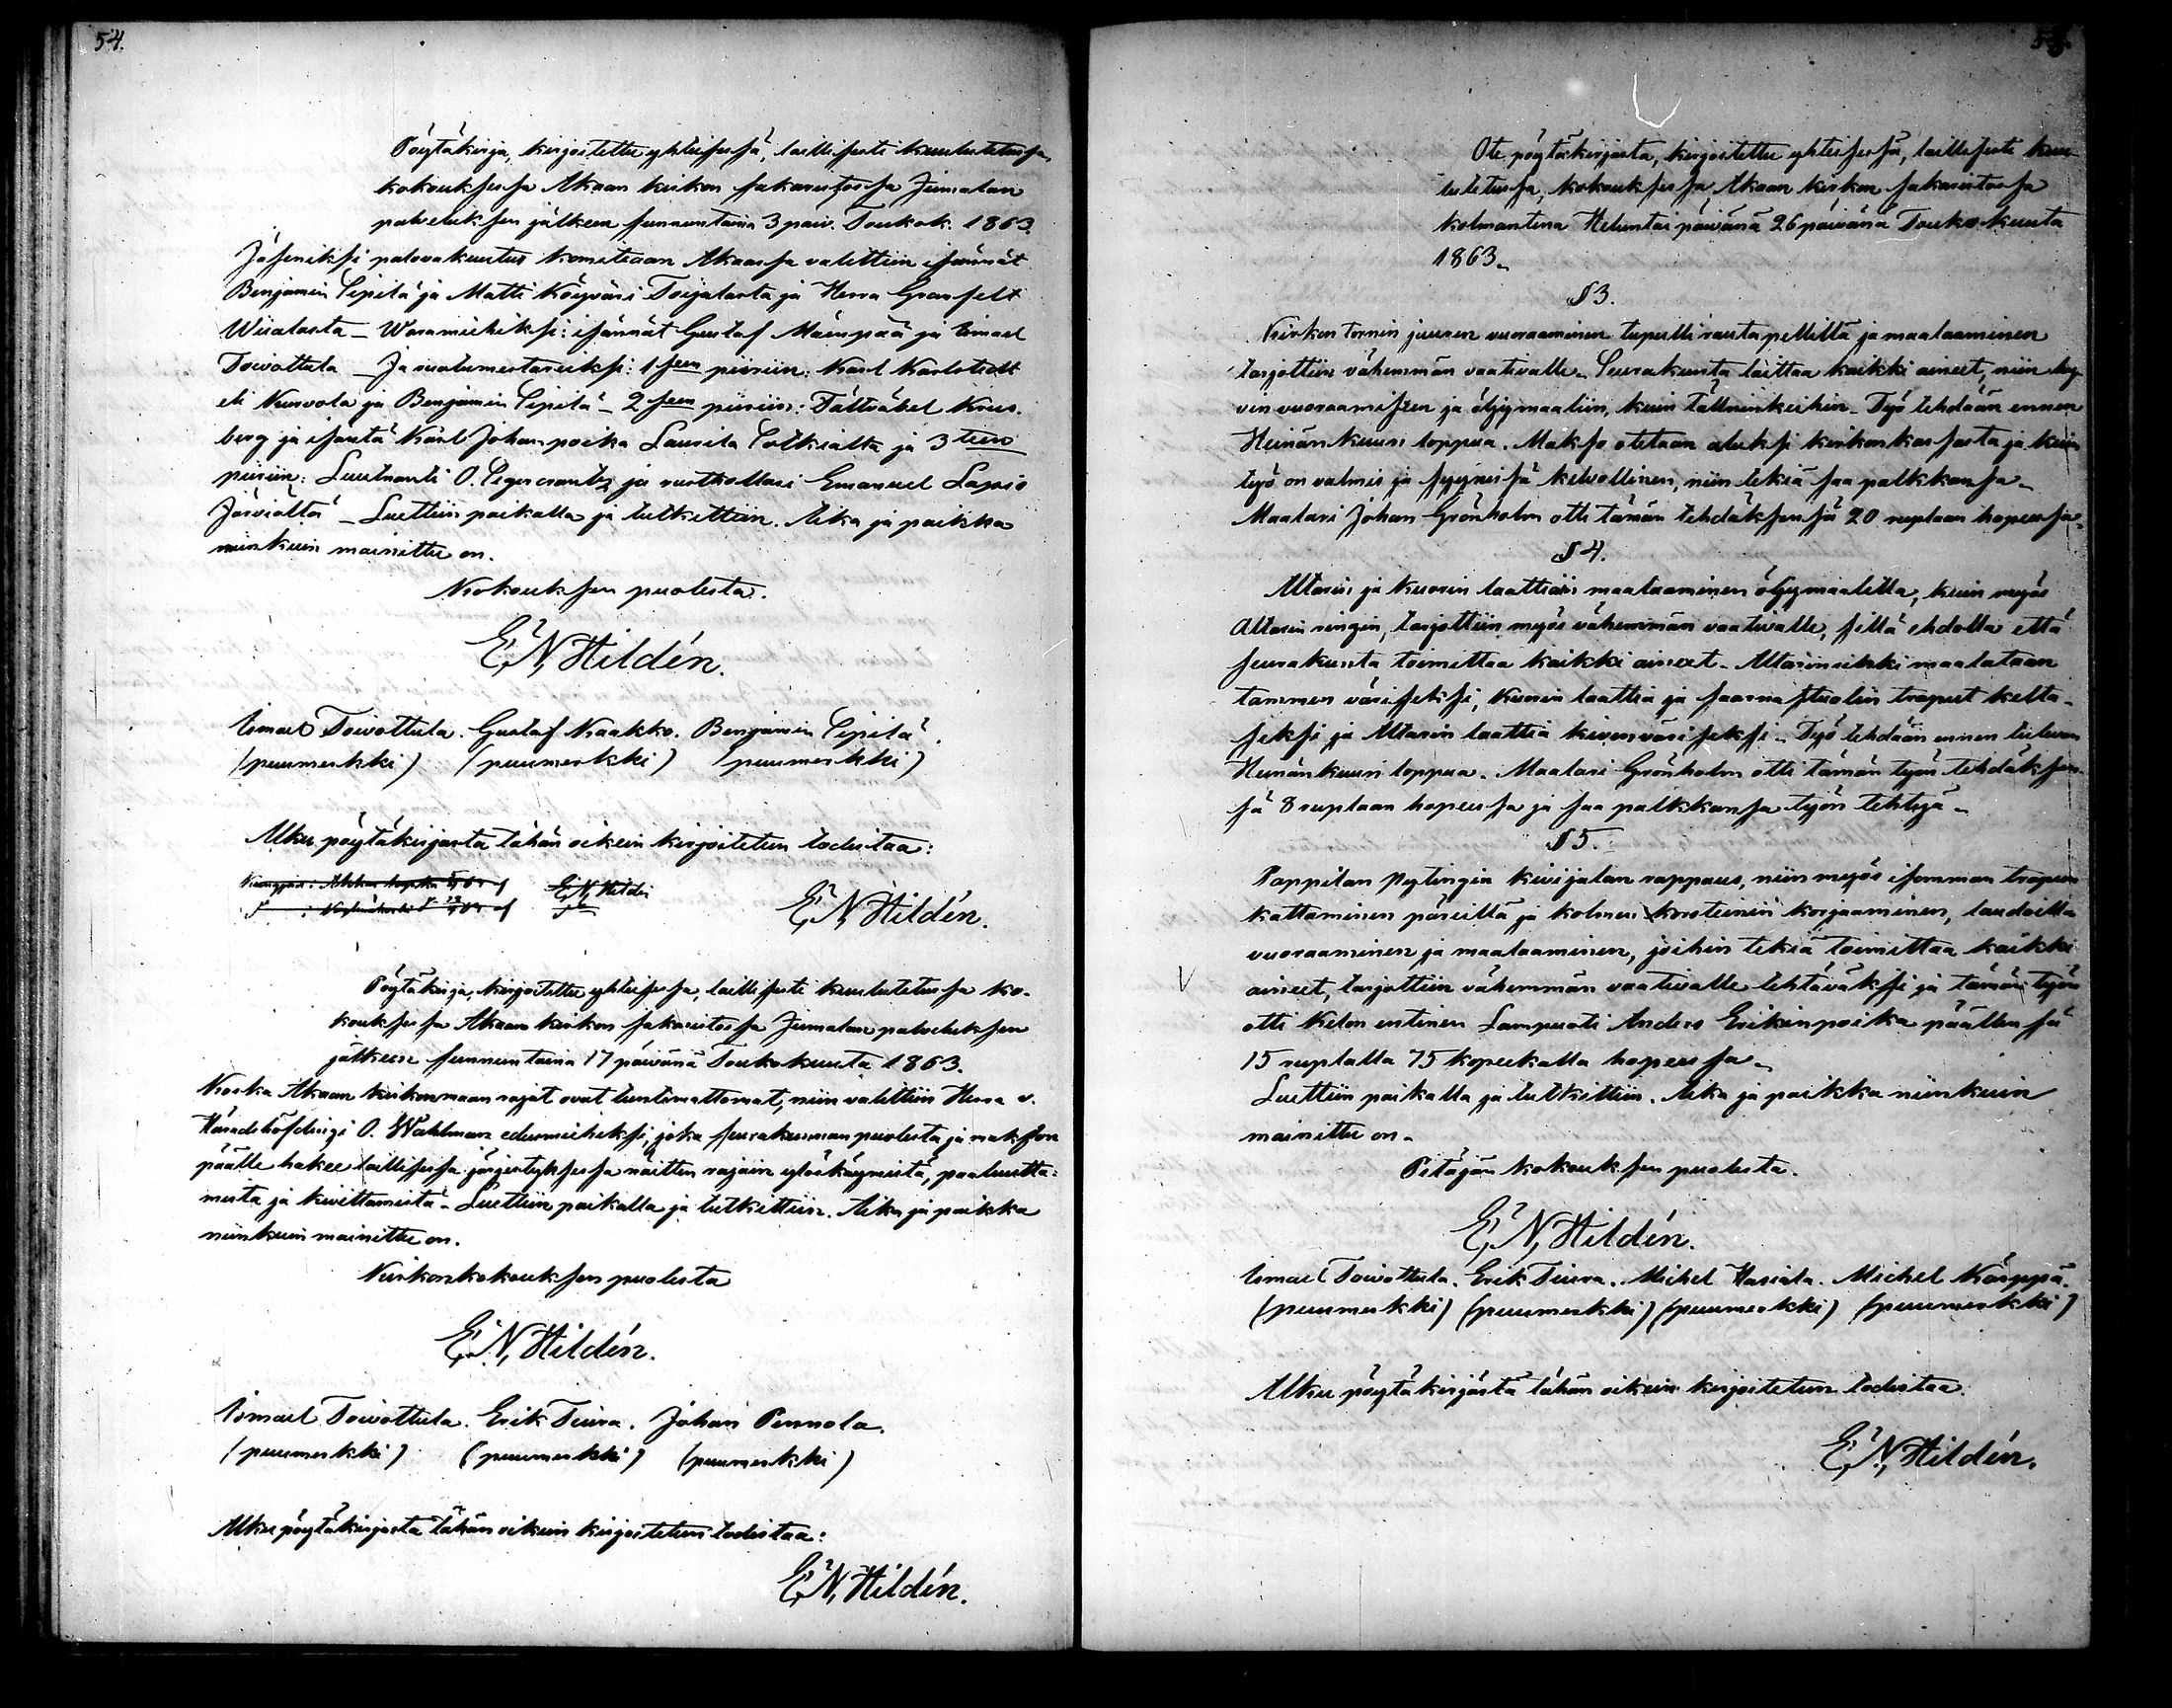 54.
Pöytäkirja, kirjoitettu yhteisessä, laillisesti kuulutetussa,
kokouksessa Akaan kirkon sakaristossa Jumalan
palveluksen jälkeen sunnuntaina 3 päiv. Toukok. 1863.
Jäseniksi palovakuutus komiteaan Akaassa valittiin isännät
Benjamin Sipilä ja Matti Köyväri Toijalasta ja Herra Granfelt
Wiialasta _ Waramiehiksi: isännät Gustaf Mäenpää ja Ismael
Toivottula _ Ja ruotumestareiksi: 1 seen piiriin: Karl Karlstedt
eli Kurvola ja Benjamin Sipilä _ 2 seen piiriin: Fältväbel Krus-
berg ja isäntä Karl Johanpoika Laurila Sotkialta ja 3 teen
piiriin: Luutnanti O. Segercrantz ja rusthollari Emanuel Lapio
Järviältä _ Luettiin paikalla ja tutkittiin. Aika ja paikka
niinkuin mainittu on.
Kokouksen puolesta.
E. N. Hildén.
Ismael Toivottula. Gustaf Naakka. Benjamin Sipilä.
(puumerkki) (puumerkki) (puumerkki)
Alku pöytäkirjasta tähän oikein kirjoitetun todistaa:
E. N. Hildén
E. N. Hildén.
Pöytäkirja, kirjoitettu yhteisessä, laillisesti kuulutetussa ko-
kouksessa Akaan kirkon sakaristossa Jumalan palveluksen
jälkeen sunnuntaina 17 päivänä Toukokuuta 1863.
Koska Akaan kirkonmaan rajat ovat tuntemattomat, niin valittiin Herra v.
Häradshöfdingi O. Wahlman edusmieheksi, joka seurakunnan puolesta ja makson
päälle hakee laillisessa järjestyksessä näitten rajain ylöskäymistä, paaluutta-
mista ja kivittämistä _ Luettiin paikalla ja tutkittiin. Aika ja paikka
niinkuin mainittu on.
Kirkonkokouksen puolesta
E. N. Hildén.
Ismael Toivottula. Erik Tiura. Johan Pennola.
(puumerkki) (puumerkki) (puumerkki)
Alku pöytäkirjasta tähän oikein kirjoitetun todistaa:
E. N. Hildén.
55.
Ote pöytäkirjasta, kirjoitettu yhteisessä, laillisesti kuu-
lutetussa, kokouksessa, Akaan kirkon sakaristossa
kolmantena Heluntai päivänä 26 päivänä Toukokuuta
1863 _
§ 3.
Kirkon tornin juuren vuoraaminen tupulti rautapellillä ja maalaaminen
tarjottiin vähemmän vaativalle _ Seurakunta laittaa kaikki aineet, niin hy-
vin vuoraamiseen ja öljymaaliin, kuin tällninkeihin _ Työ tehdään ennen
Heinänkuun loppua. Makso otetaan aluksi kirkonkassasta ja kuin
työ on valmis ja syynissä kelvollinen, niin tekiä saa palkkansa _
Maalari Johan Grönholm otti tämän tehdäksensä 20 ruplaan hopeessa _
§ 4.
Altarin ja kuorin laattian maalaaminen öljymaalilla, kuin myös
Altarin ringin, tarjottiin myös vähemmän vaativalle, sillä ehdolla että
seurakunta toimittaa kaikki aineet _ Altarinrinki maalataan
tammen väriseksi, kuorin laattia ja saarna stuolin traput kelta-
seksi ja Altarin laattia kivenväriseksi _ Työ tehdään ennen tulevan
Heinänkuun loppua. Maalari Grönholm otti tämän työn tehdäksen-
sä 8 ruplaan hopeessa ja saa palkkansa työn tehtyä _
§ 5.
Pappilan pytingin kivijalan rappaus, niin myös isomman trapun
kattaminen päreillä ja kolmen korsteinin korjaaminen, laudoilla
vuoraaminen ja maalaaminen, joihin tekiä toimittaa kaikki
aineet, tarjottiin vähemmän vaativalle tehtäväksi ja tämän työn
otti Kelon entinen Lampuoti Anders Erikinpoika päällensä
15 ruplalla 75 kopeekalla hopeessa _
Luettiin paikalla ja tutkittiin. Aika ja paikka niinkuin
mainittu on _
Pitäjän kokouksen puolesta.
E. N. Hildén.
Ismael Toivottula. Erik Tiura. Michel Hariala. Michel Kärppä.
(puumerkki) (puumerkki) (puumerkki) (puumerkki)
Alku pöytäkirjasta tähän oikein kirjoitetun todistaa.
E. N. Hildén.